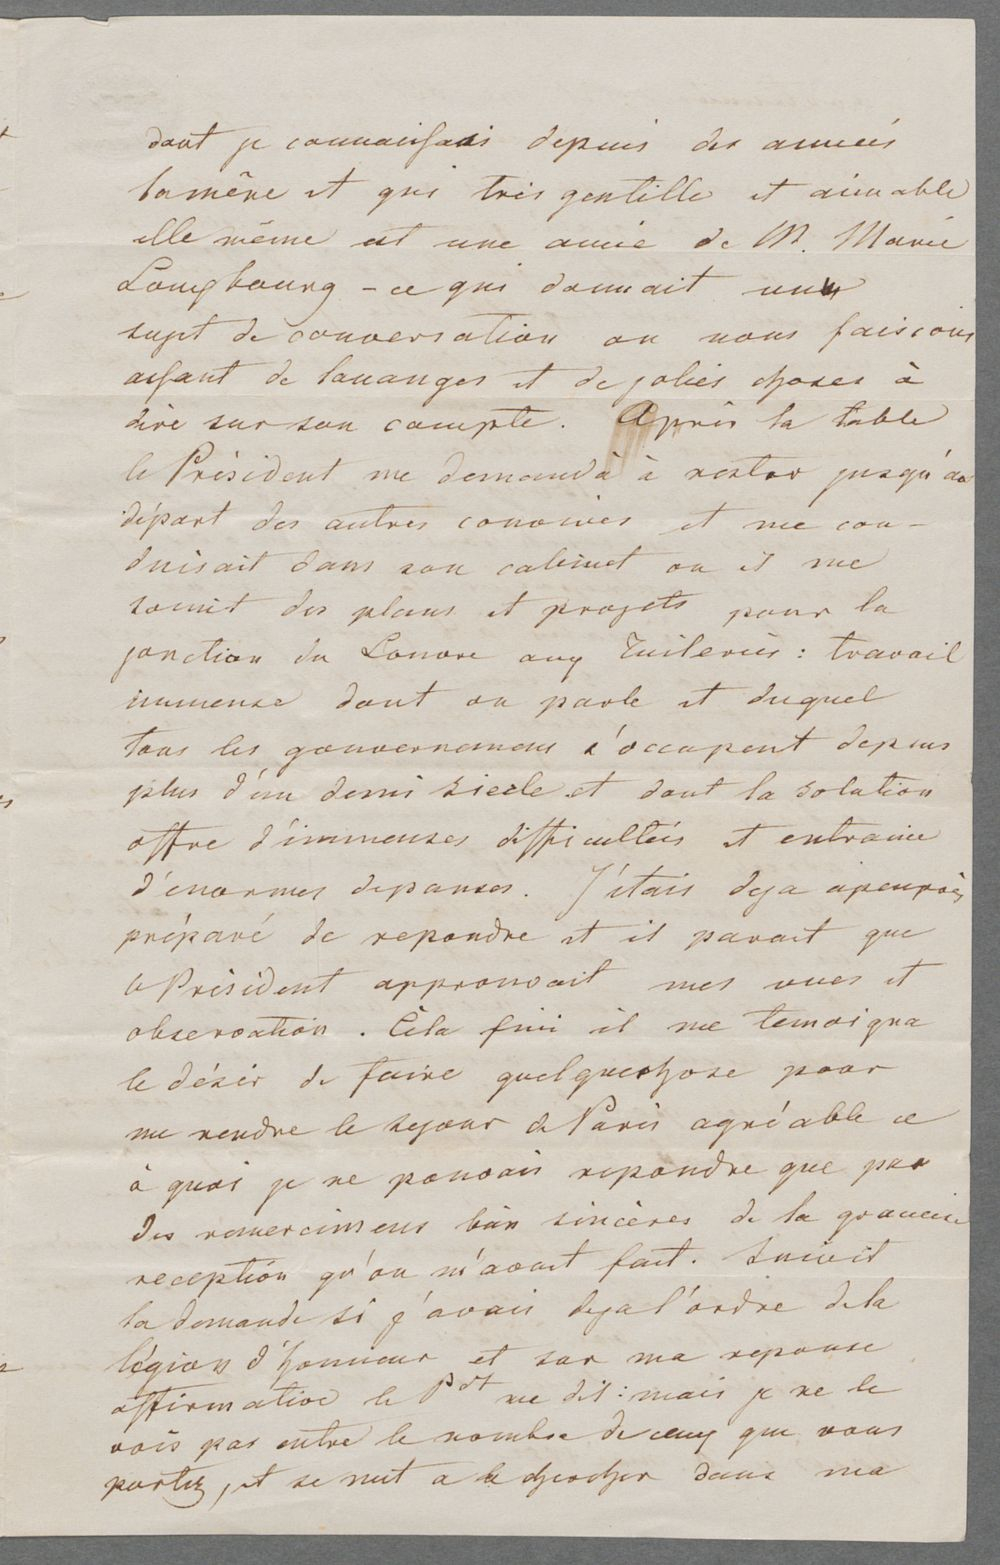 dont je connaissais depuis des années
la mêre et qui très gentille et aimable
elle même est une amie de M. Marie
– ce qui donnait un
sujet de conversation ou nous faisions
assant de louanges et de jolies choses à
dire sur son compte. Après la table
le Président me demandà à rester jusqu'au
départ des autres convives et me con-
duisait dans son cabinet ou il me
soumit des plans et projets pour la
jonction du Louvre aux Tuileries : travail
immense dont on parle et duquel
tous les gouvernemens s'occupent depuis
plus d'un demi siecle et dont la solution
offre d'immenses difficultés et entraine
d'enormes depenses. J'étais deja apeuprès
préparé de repondre et il parait que
le Président approuvait mes vues et
observation. Cela fini il me temoigna
le désir de faire quelquechose pour
me rendre le sejour de Paris agréable ce
à quoi je ne pouvais repondre que par
des remercimens bien sincères de la gracieuse
reception qu'on m'avait fait. Suivit
la demande si j'avais deja l'ordre de la
légion d'honneur et sur ma reponse
affirmative le Pdt me dit : mais je ne le
vois pas entre le nombre de ceux que vous
portez, et se mit a le chercher dans ma